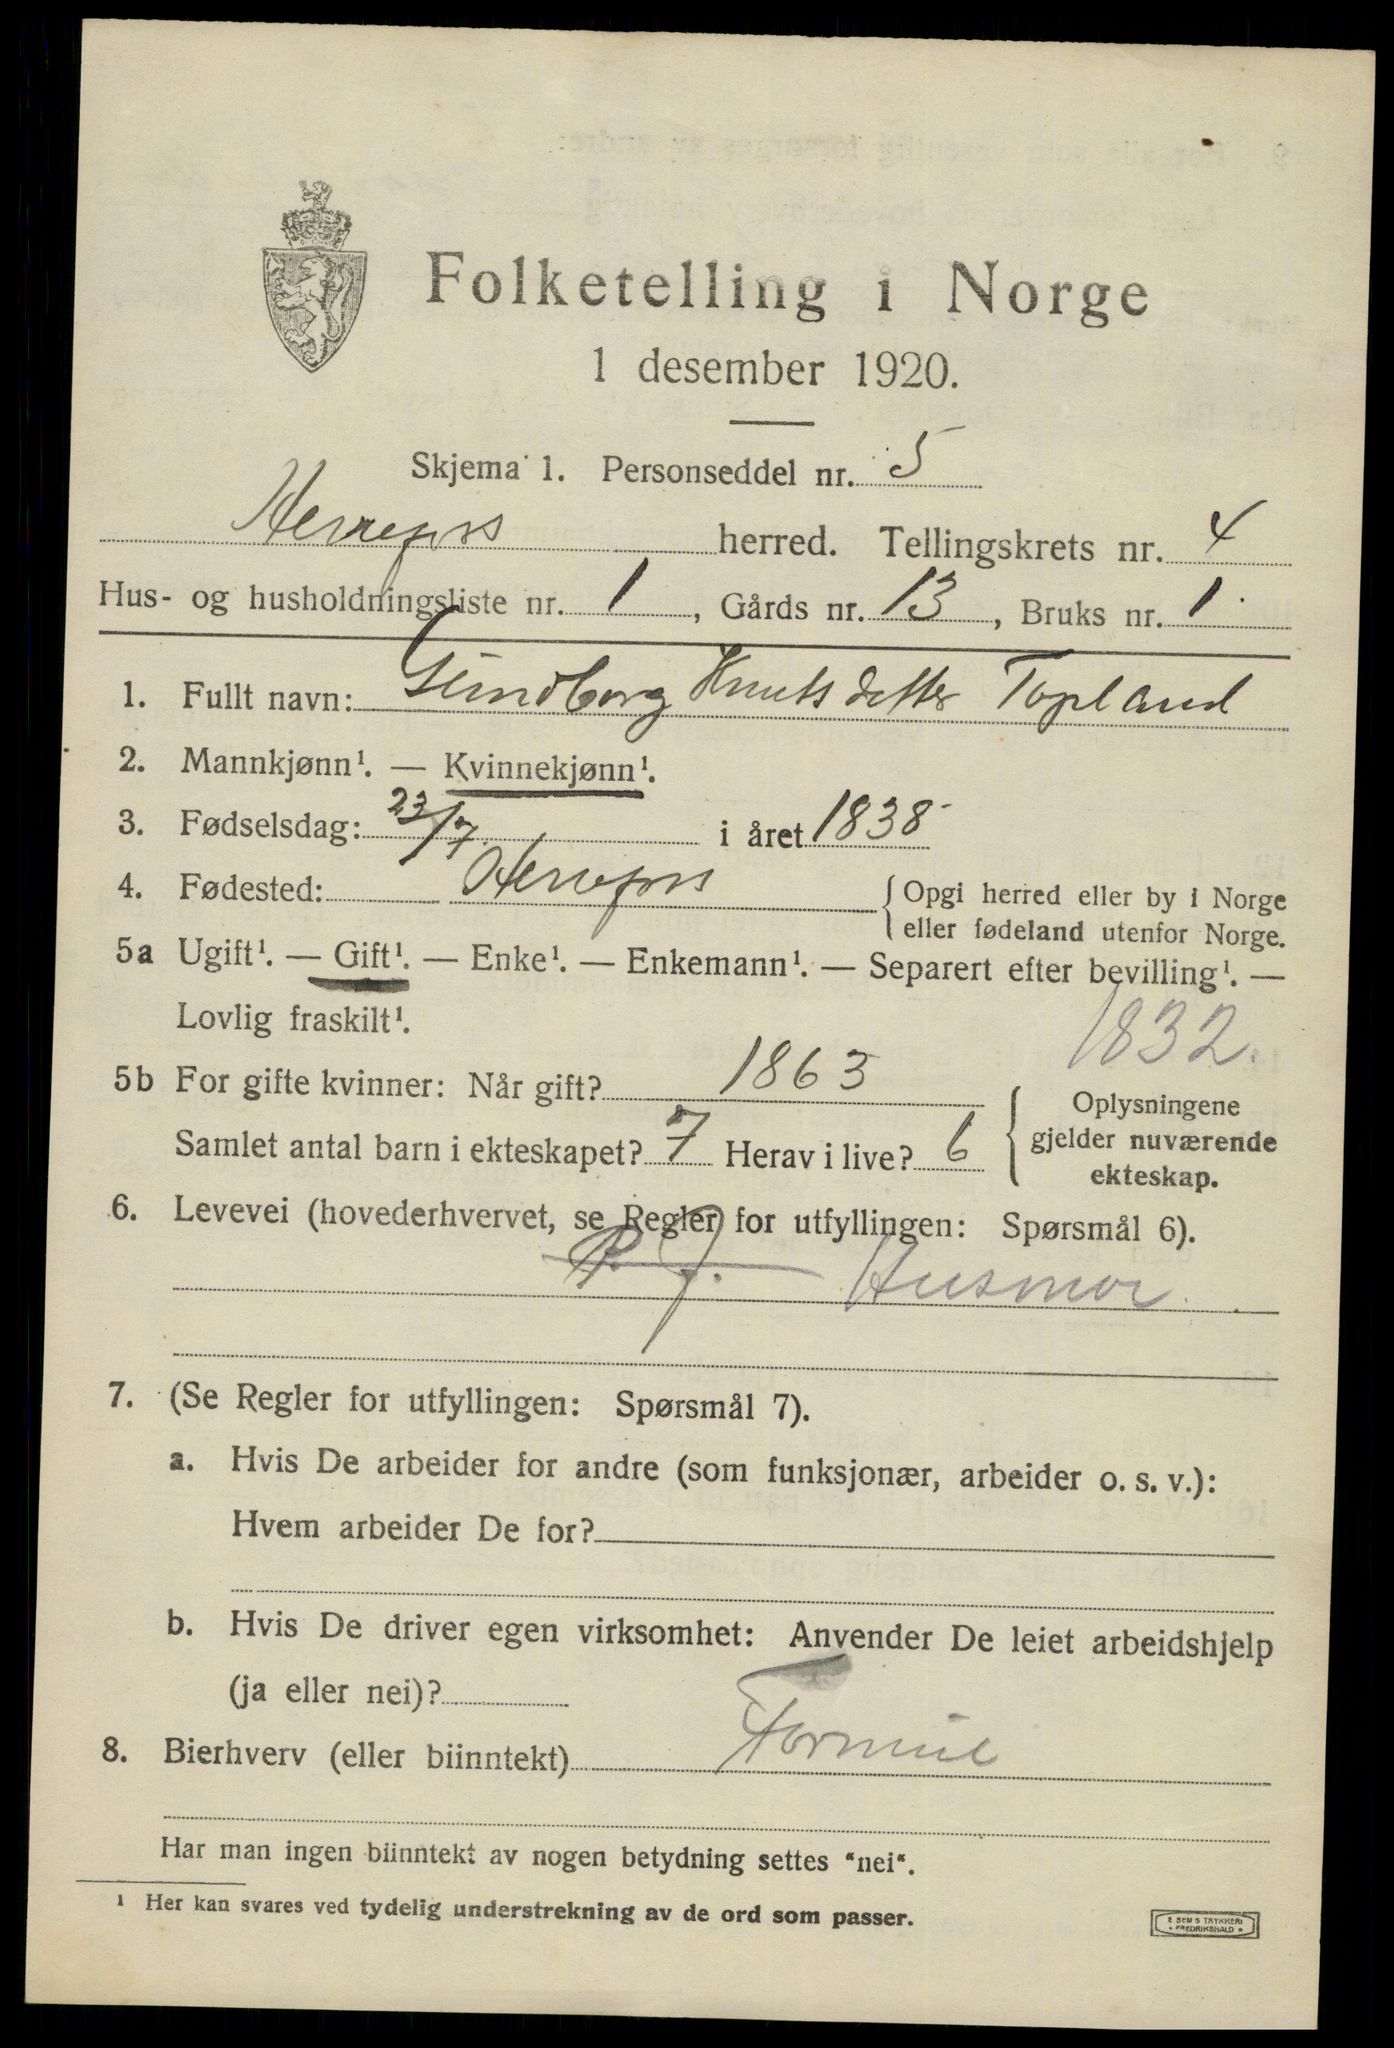 Folketelling i Norge
1 desember 1920.
Skjema 1. Personseddel nr. 5
Herefoss herred. Tellingskrets nr. 4
Hus- og husholdningsliste nr. 1, Gårds nr. 13, Bruks nr. 1.
1. Fullt navn: Gundborg Knutsdatter Topland
2. Mannkjønn¹. — Kvinnekjønn¹.
3. Fødselsdag: 23/7 i året 1838
4. Fødested: Herefoss {Opgi herred eller by i Norge
eller fødeland utenfor Norge.
5a Ugift¹. — Gift¹. — Enke¹. — Enkemann¹. — Separert efter bevilling¹. —
Lovlig fraskilt¹.
1832.
5b For gifte kvinner: Når gift? 1863
Samlet antal barn i ekteskapet? 7 Herav i live? 6 {Oplysningene
gjelder nuværende
ekteskap.
6. Levevei (hovederhvervet, se Regler for utfyllingen: Spørsmål 6).
Husmor
7. (Se Regler for utfyllingen: Spørsmål 7).
a. Hvis De arbeider for andre (som funksjonær, arbeider o. s. v.):
Hvem arbeider De for?
b. Hvis De driver egen virksomhet: Anvender De leiet arbeidshjelp
(ja eller nei)?
8. Bierhverv (eller biinntekt)
Har man ingen biinntekt av nogen betydning settes "nei".
¹ Her kan svares ved tydelig understrekning av de ord som passer.
E. SEMS TRYKKERI
FREDRIKSHALD